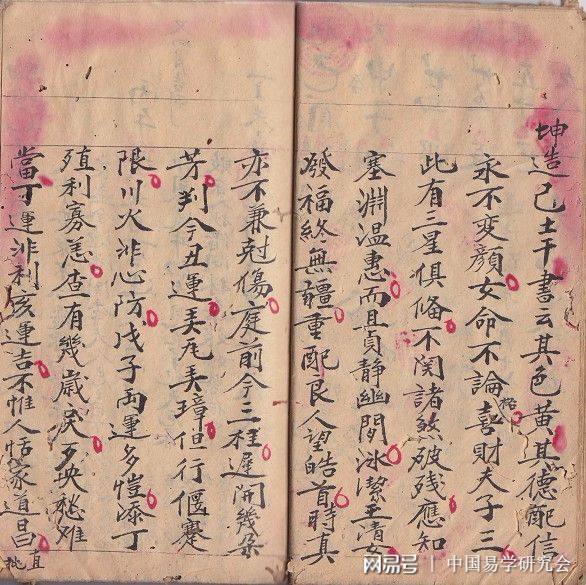 坤造己土干書云其色黃其德配信
永不变顏女命不論格喜財夫子三
此有三星俱備不関諸煞破残應知
塞淵温惠而且貞靜幽閒冰潔玉清女
發福終無疆重配良人望皓首時真
亦不兼尅傷庭前今三桂遲開幾朵
芳判今丑運弄瓦弄璋但行偃蹇
限川火非心防戊子両運多愷添丁
殖利寡恙查有幾歲災殃愁难
當丁運非利該運吉不惟人恬家道日
直
批
网易号
中国易学研究会